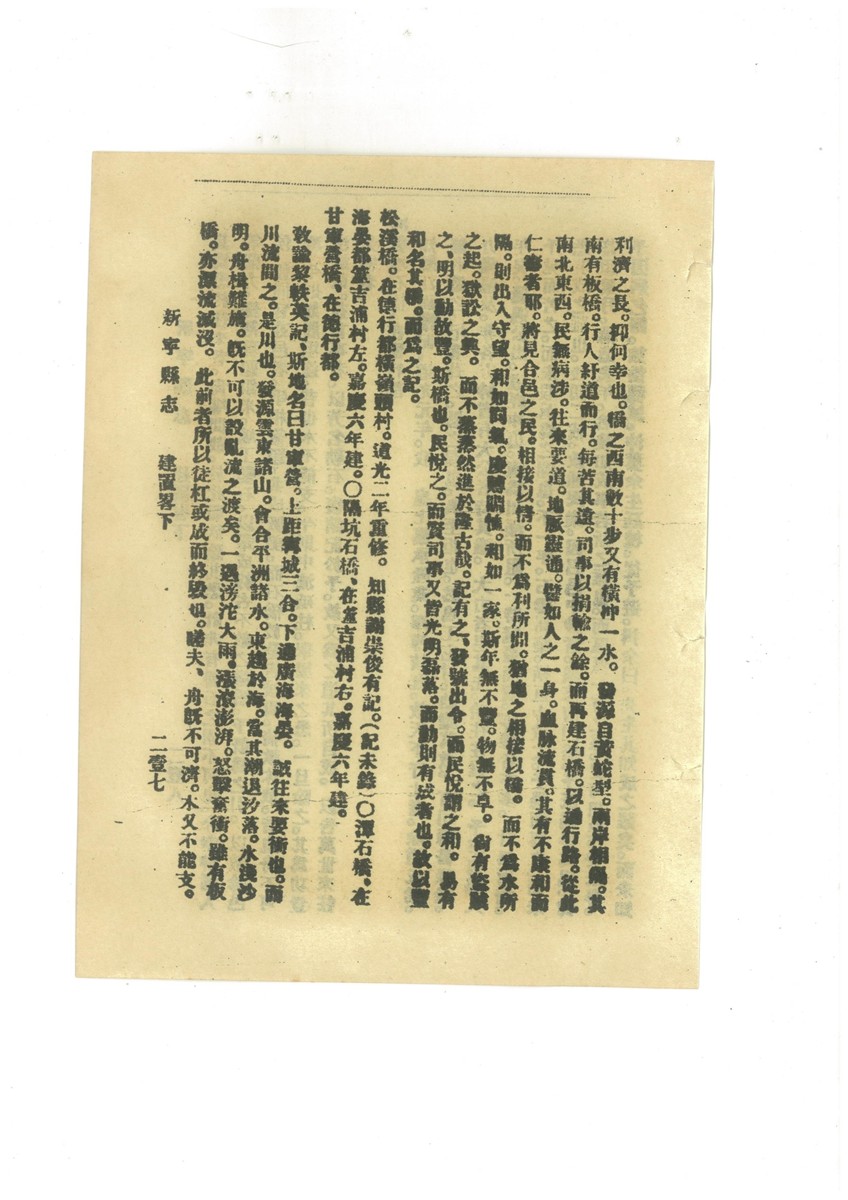 利濟之長。抑何幸也。橋之西南數十步又有橫冲一水。發源自黃蛇型。兩岸相隔。其
南有板橋。行人紆道而行。每苦其遠。司事以捐輸之餘。而再建石橋。以通行路。從此
南北東西。民無病涉。往來要道。地脈靈通。譬如人之一身。血脉流貫。其有不康和而
仁壽者耶。將見合邑之民。相接以情。而不爲利所間。猶地之相接以橋。而不爲水所
隔。則出入守望。和如同氣。慶賻關恤。和如一家。斯年無不豐。物無不阜。尙有盜賊
之起。獄訟之興。而不蒸蒸然進於隆古哉。記有之、發號出令。而民悅謂之和。易有
之、明以動故豐。斯橋也。民悅之。而賢司事又皆光明磊落。而動則有成者也。故以豐
和名其橋。而爲之記。
松溪橋。在德行都橫嶺頭村。道光二年重修。知縣謝崇俊有記。(記未錄(〇潭石橋、在
海晏都薑吉浦村左。嘉慶六年建。〇隔坑石橋、在薑吉浦村右。嘉慶六年建。
甘軍營橋、在德行都。
敎諭黎軼英記、斯地名曰甘軍營。上距寗城三合。下通廣海海晏。誠往來要衝也。而
川流間之。是川也。發源雲東諸山。會合平洲諸水。東趨於海。當其潮退汐落。水淺沙
明。舟楫難施。旣不可以設亂流之渡矣。一遇滂沱大雨。漲潦澎湃。怒擊奮衝。雖有板
橋。亦漂流滅沒。此前者所以徒杠或成而終毀也。嗟夫、舟旣不可濟。木又不能支。
新寧縣志 建置畧下 二壹七